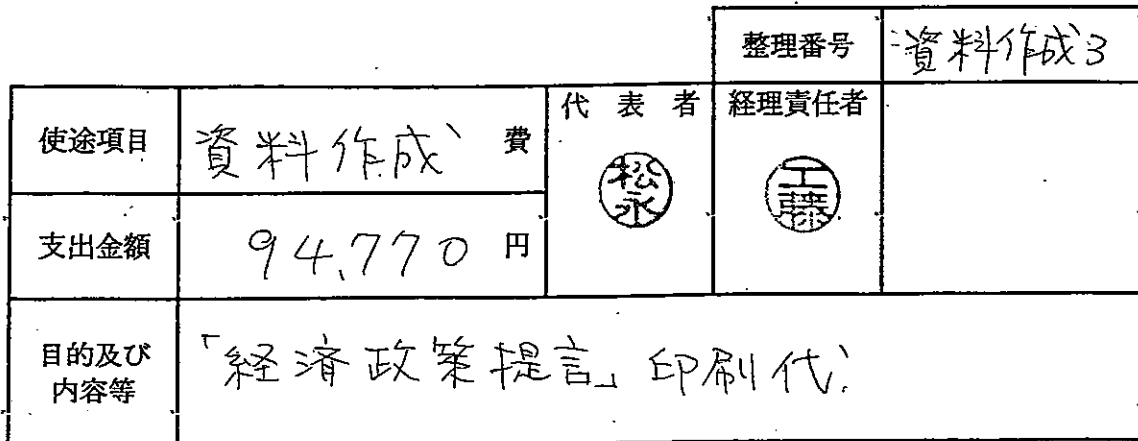 整理番号 資料作成3
使途項目 資料作成 費 代表者 経理責任者
松永 工藤
支出金額 94,770 円
目的及び内容等 「経済政策提言」印刷代